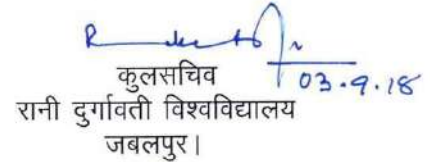 03.9.18
कुलसचिव
रानी दुर्गावती विश्वविद्यालय
जबलपुर।